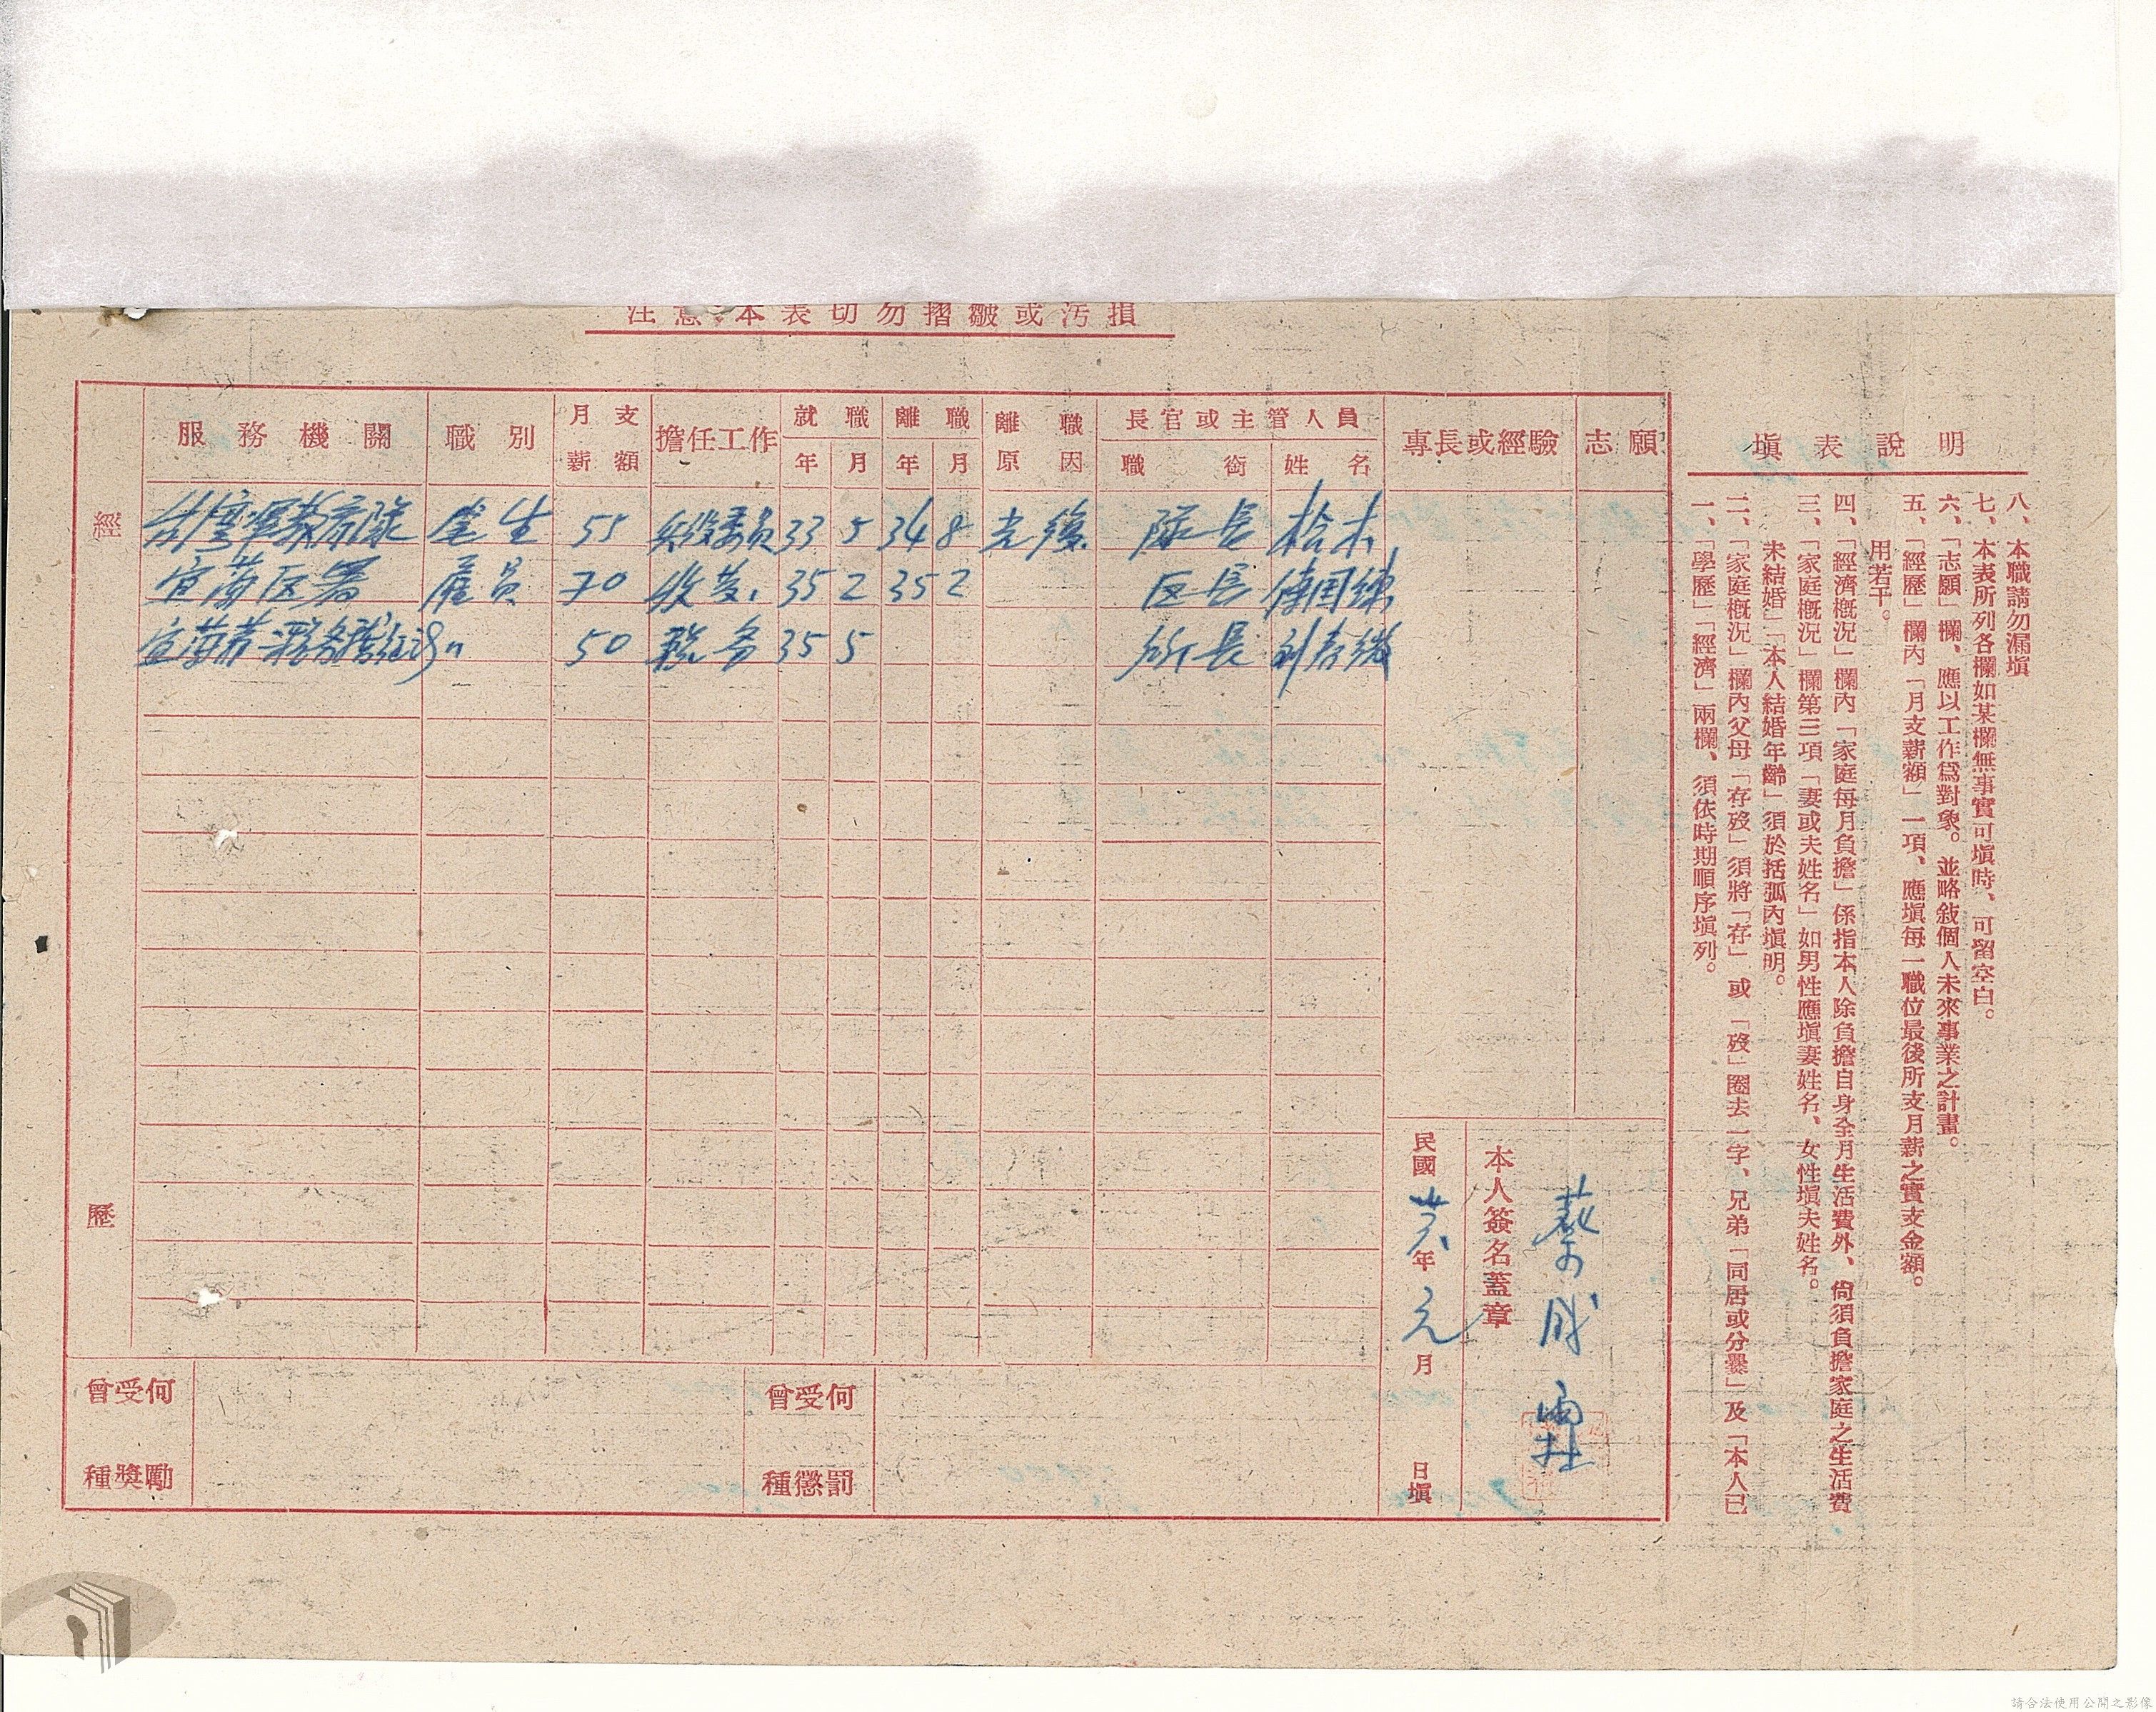 注意 本表切勿摺皺或污損
經歷
服務機關 職別 月支薪額 擔任工作 就職 年 月 離職 年 月 離職原因 長官或主管人員 職銜 姓名 專長或經驗 志願
生 55 委員 33 5 34 8 光復 隊長 松木
宜蘭区署 雇員 70 收 35 2 35 2 区長
宜蘭 50 稅务 35 5 所長
曾受何種獎勵
曾受何種懲罰
本人簽名蓋章
蔡 成
民國 年元月 日填
填表說明
一、「學歷」「經濟」兩欄、須依時期順序填列。
二、「家庭概況」欄內父母「存歿」須將「存」或「歿」圈去一字、兄弟「同居或分爨」及「本人已
未結婚」「本人結婚年齡」須於括弧內填明。
三、「家庭概況」欄第三項「妻或夫姓名」如男性應填妻姓名、女性填夫姓名。
四、「經濟概況」欄內「家庭每月負擔」係指本人除負擔自身全月生活費外、尙須負擔家庭之生活費
用若干。
五、「經歷」欄內「月支薪額」一項、應填每一職位最後所支月薪之實支金額。
六、「志願」欄、應以工作爲對象。並略敍個人未來事業之計畫。
七、本表所列各欄如某欄無事實可填時、可留空白。
八、本職請勿漏填
請合法使用公開之影像